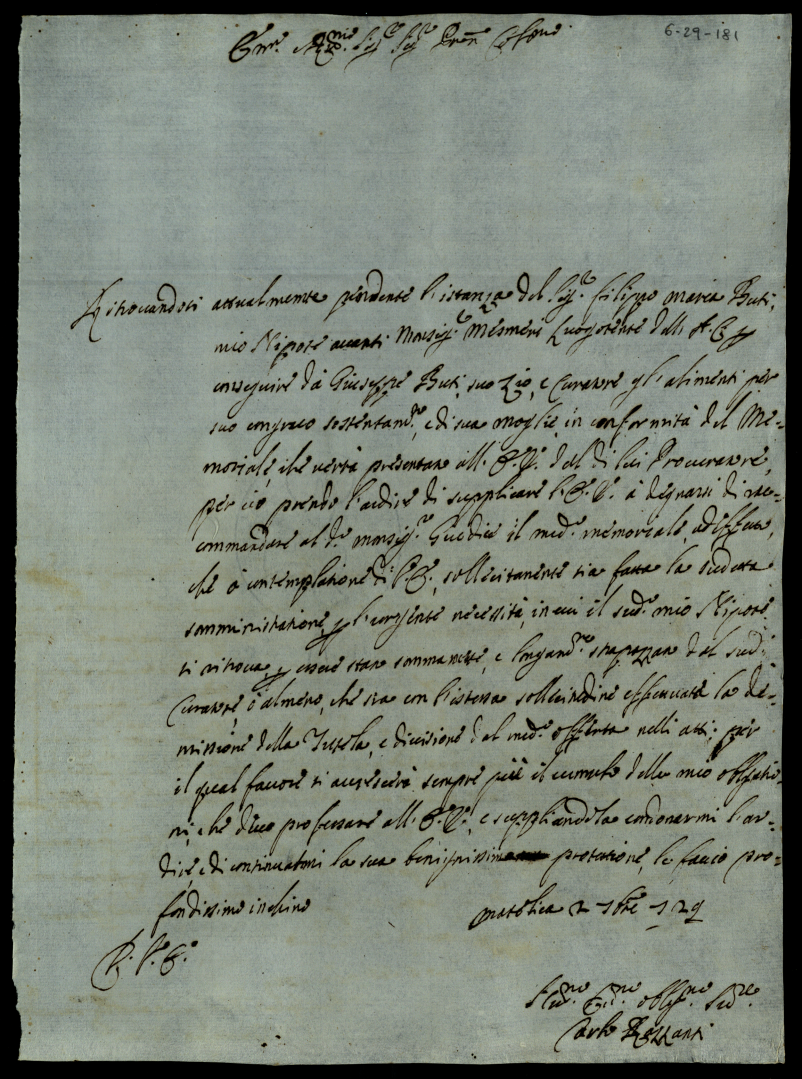 6-29-181
Em.mo Sig.re Sig.re Pron Col.mo
Ritrovandosi attualmente pendente l'istanza del Sig.r Filippo Maria Buti
mio Nipote avanti Monsig.re Mesmeri Luogotente dell A. C. p
conseguire dà Giuseppe Buti, suo Zio, e Curatore gl'alimenti per
suo congruo sostentam.to, e di sua moglie, in conformità del Me-
moriale, che verrà presentato all' E. V. dal di lui Procuratore,
per ciò prendo l'ardire di supplicare l' E. V. à degnarsi di rac-
commandare al d.o monsig.re Giudice il med.o memoriale, ad effetto,
che à contemplatione di V. E., sollecitamente sia fatta la sudetta
somministratione, p l'urgente necessità, in cui il sud.o mio Nipote
si ritrova p essere stato sommamente, e longam.te strapazzato dal sud.o
Curatore, ò almeno, che sia con l'istessa sollecitudine effettuata la de-
missione della Tutela, e divisione dal med.o offerta nelli atti; per
il qual favore si accrescerà sempre più il cumulo delle mie obligatio-
ni, che devo professare all' E. V., e suppliandola condonarmi l'ar-
dire, e di continuatmi la sua benignissima protetione, le faccio pro-
fondissimo inchino
Matelica 2 7bre 729
D. V. E.
Hum.mo obblig.mo Ser.re
Carlo